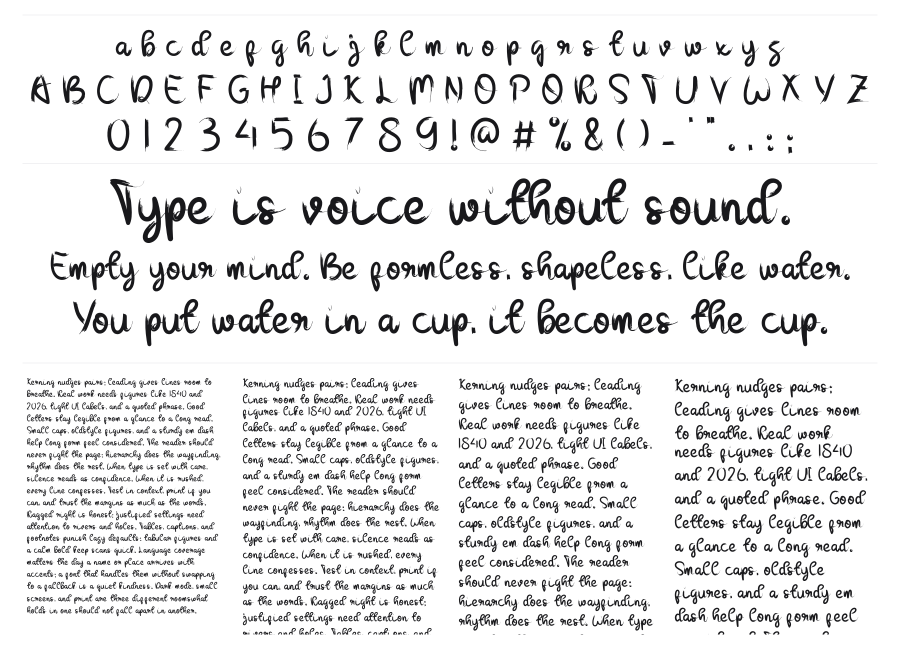 a b c d e f g h i j k l m n o p q r s t u v w x y z
A B C D E F G H I J K L M N O P Q R S T U V W X Y Z
0 1 2 3 4 5 6 7 8 9 ! @ # % & ( ) - ' " . , : ;
Type is voice without sound.
Empty your mind. Be formless, shapeless, like water.
You put water in a cup, it becomes the cup.
Kerning nudges pairs; leading gives lines room to
breathe. Real work needs figures like 1840 and
2026, tight UI labels, and a quoted phrase. Good
letters stay legible from a glance to a long read.
Small caps, oldstyle figures, and a sturdy em dash
help long form feel considered. The reader should
never fight the page; hierarchy does the wayfinding,
rhythm does the rest. When type is set with care,
silence reads as confidence. When it is rushed,
every line confesses. Test in context, print if you
can, and trust the margins as much as the words.
Ragged right is honest; justified settings need
attention to rivers and holes. Tables, captions, and
footnotes punish lazy defaults; tabular figures and
a calm bold keep scans quick. Language coverage
matters the day a name or place arrives with
accents; a font that handles them without swapping
to a fallback is a quiet kindness. Dark mode, small
screens, and print are three different rooms what
holds in one should not fall apart in another.
Kerning nudges pairs; leading gives
lines room to breathe. Real work needs
figures like 1840 and 2026, tight UI
labels, and a quoted phrase. Good
letters stay legible from a glance to a
long read. Small caps, oldstyle figures,
and a sturdy em dash help long form
feel considered. The reader should
never fight the page; hierarchy does the
wayfinding, rhythm does the rest. When
type is set with care, silence reads as
confidence. When it is rushed, every
line confesses. Test in context, print if
you can, and trust the margins as much
as the words. Ragged right is honest;
justified settings need attention to
rivers and holes. Tables, captions, and
Kerning nudges pairs; leading
gives lines room to breathe.
Real work needs figures like
1840 and 2026, tight UI labels,
and a quoted phrase. Good
letters stay legible from a
glance to a long read. Small
caps, oldstyle figures, and a
sturdy em dash help long form
feel considered. The reader
should never fight the page;
hierarchy does the wayfinding,
rhythm does the rest. When type
Kerning nudges pairs;
leading gives lines room
to breathe. Real work
needs figures like 1840
and 2026, tight UI labels,
and a quoted phrase. Good
letters stay legible from
a glance to a long read.
Small caps, oldstyle
figures, and a sturdy em
dash help long form feel